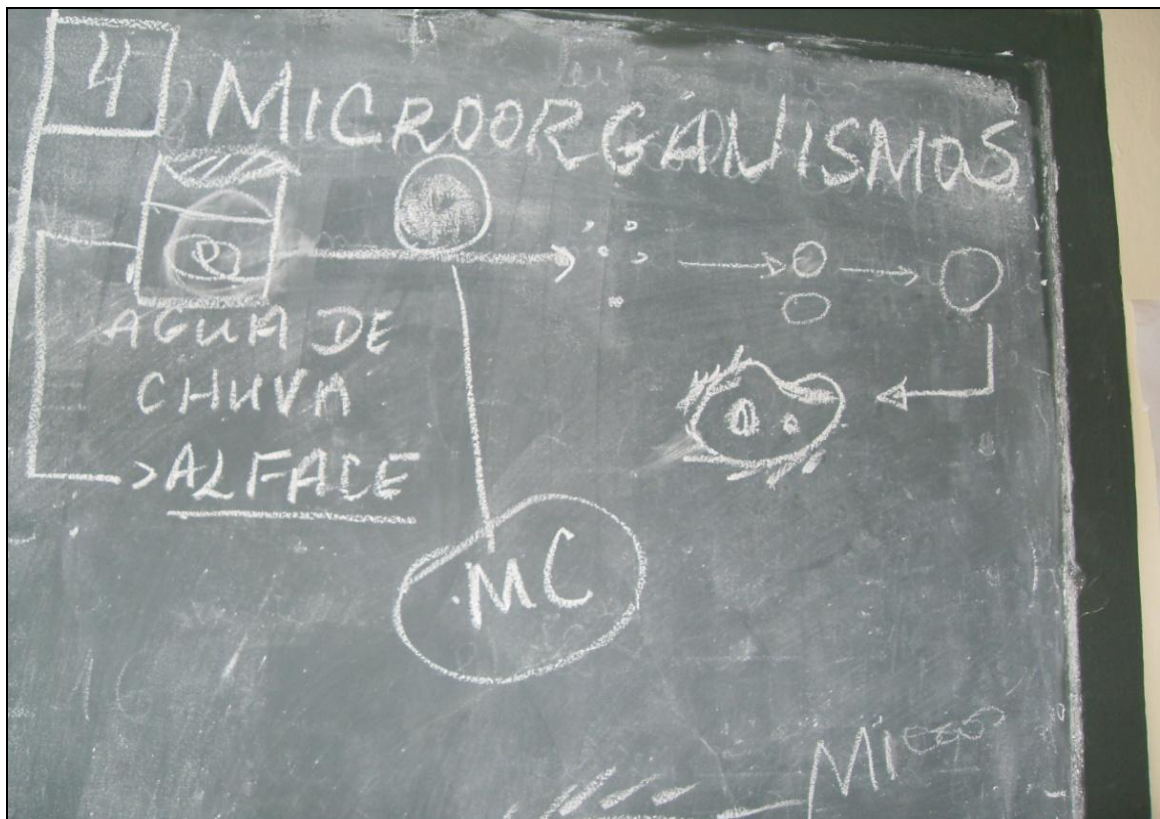 4
MICROORGANISMOS
AGUA DE
CHUVA
>ALFACE
.MC